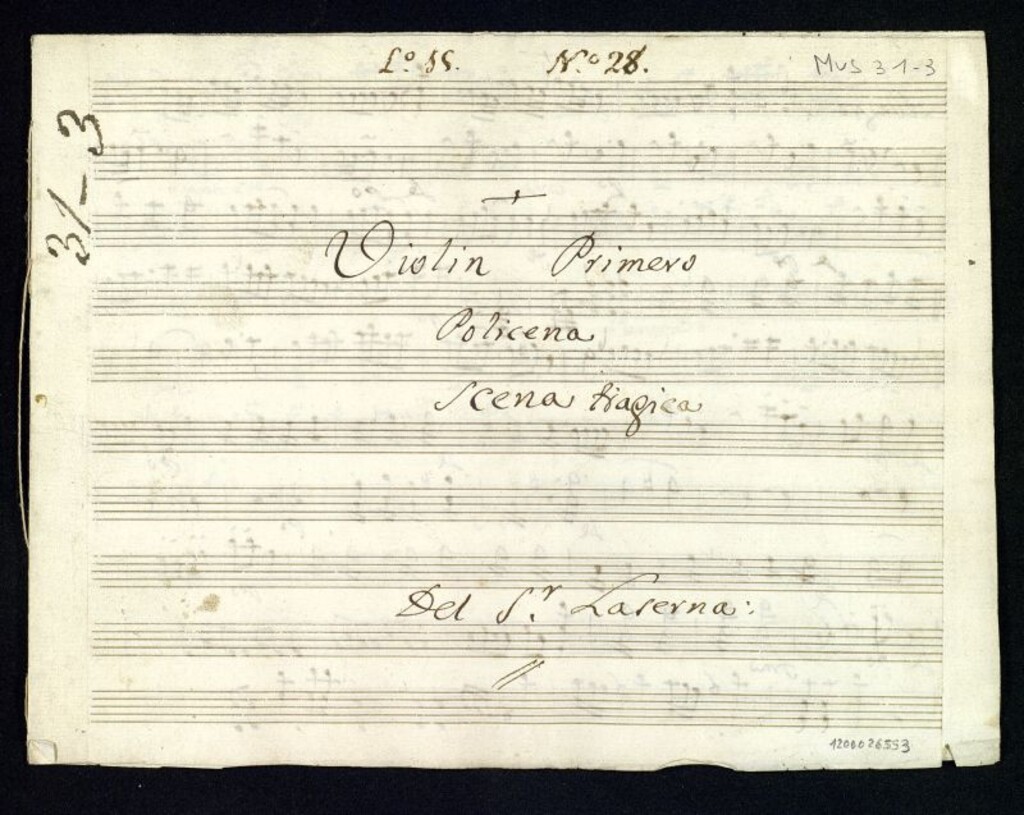 L.º 55. N.º 28.
Mus 31-3
31-3
Violin Primero
Policena
Scena tragica
Del S.r Laserna:
1200026553